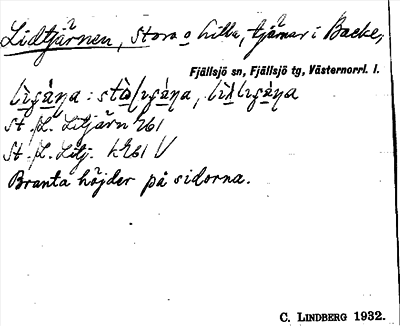 Lidtjärnen, Stora o Lilla, tjärnar i Backe,
Fjällsjö sn, Fjällsjö tg, Västernorrl. l.
St. /L. Litjärn 261
St. /L. Litj. k261 V
Branta höjder på sidorna.
C. LINDBERG 1932.